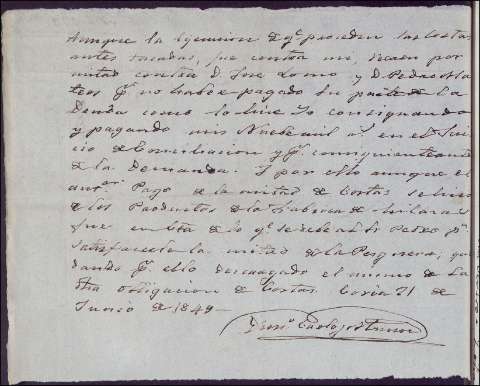 Aunque la egecucion de qᵉ proceden las Costas
antes tasadas, fue contra mi, recaen por
mitad contra D. Jose Lomo y D. Pedro Ma
teos pʳ no haber pagado su parte de la
Deuda como lo hice Yo consignando
y pagando mis Nueve mil rˢ en el Jui
cio de Conciliacion y pʳ consiguiente ante
de la Demanda. Y por ello aunque el
antᵒʳ Pago de la mitad de Costas se hizo
de los Productos de la Fabrica de hilaza
fue en cta de lo qᵉ se debe a D. Pedro pʳ
satisfacerle la mitad de la Pesquera, que
dando pʳ ello descargado el mismo de la
otra obligacion de Costas. Coria 21 de
Junio de 1849